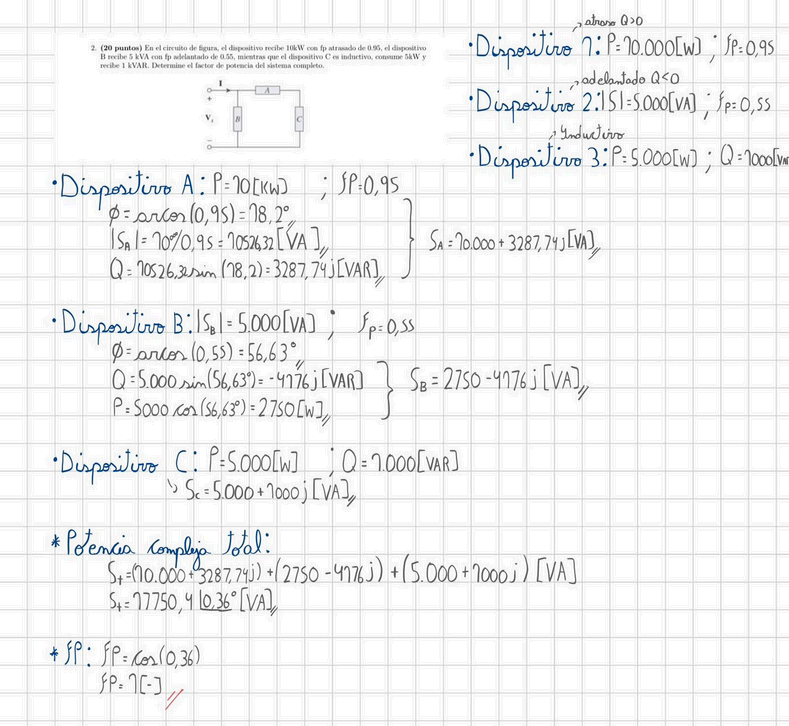 2. (20 puntos) En el circuito de figura, el dispositivo recibe 10kW con fp atrasado de 0.95, el dispositivo
B recibe 5 kVA con fp adelantado de 0.55, mientras que el dispositivo C es inductivo, consume 5kW y
recibe 1 kVAR. Determine el factor de potencia del sistema completo.
I
A
+
V_s
B
C
−
↗ atraso Q>0
•Dispositivo 1: P=10.000[W] ; fP=0,95
↗ adelantado Q<0
•Dispositivo 2: |S|=5.000[VA] ; fp=0,55
↗ Inductivo
•Dispositivo 3: P=5.000[W] ; Q=1000[VAR
•Dispositivo A: P=10[KW] ; fP=0,95
Ø=arcos(0,95)=18,2°
|S_A|=10⁴/0,95=10526,32[VA]
Q=10526,32 sin(18,2)=3287,74j[VAR]
S_A=10.000+3287,74j[VA]
•Dispositivo B: |S_B|=5.000[VA] ; fp=0,55
Ø=arcos(0,55)=56,63°
Q=5.000 sin(56,63°)=-4176j[VAR]
P=5000 cos(56,63°)=2750[W]
S_B=2750-4176j[VA]
•Dispositivo C: P=5.000[W] ; Q=1.000[VAR]
↳ S_C=5.000+1000j[VA]
* Potencia compleja total:
S_t=(10.000+3287,74j)+(2750-4176j)+(5.000+1000j)[VA]
S_t=17750,4 |0,36°[VA]
* fP: fP=cos(0,36)
fP=1[-]